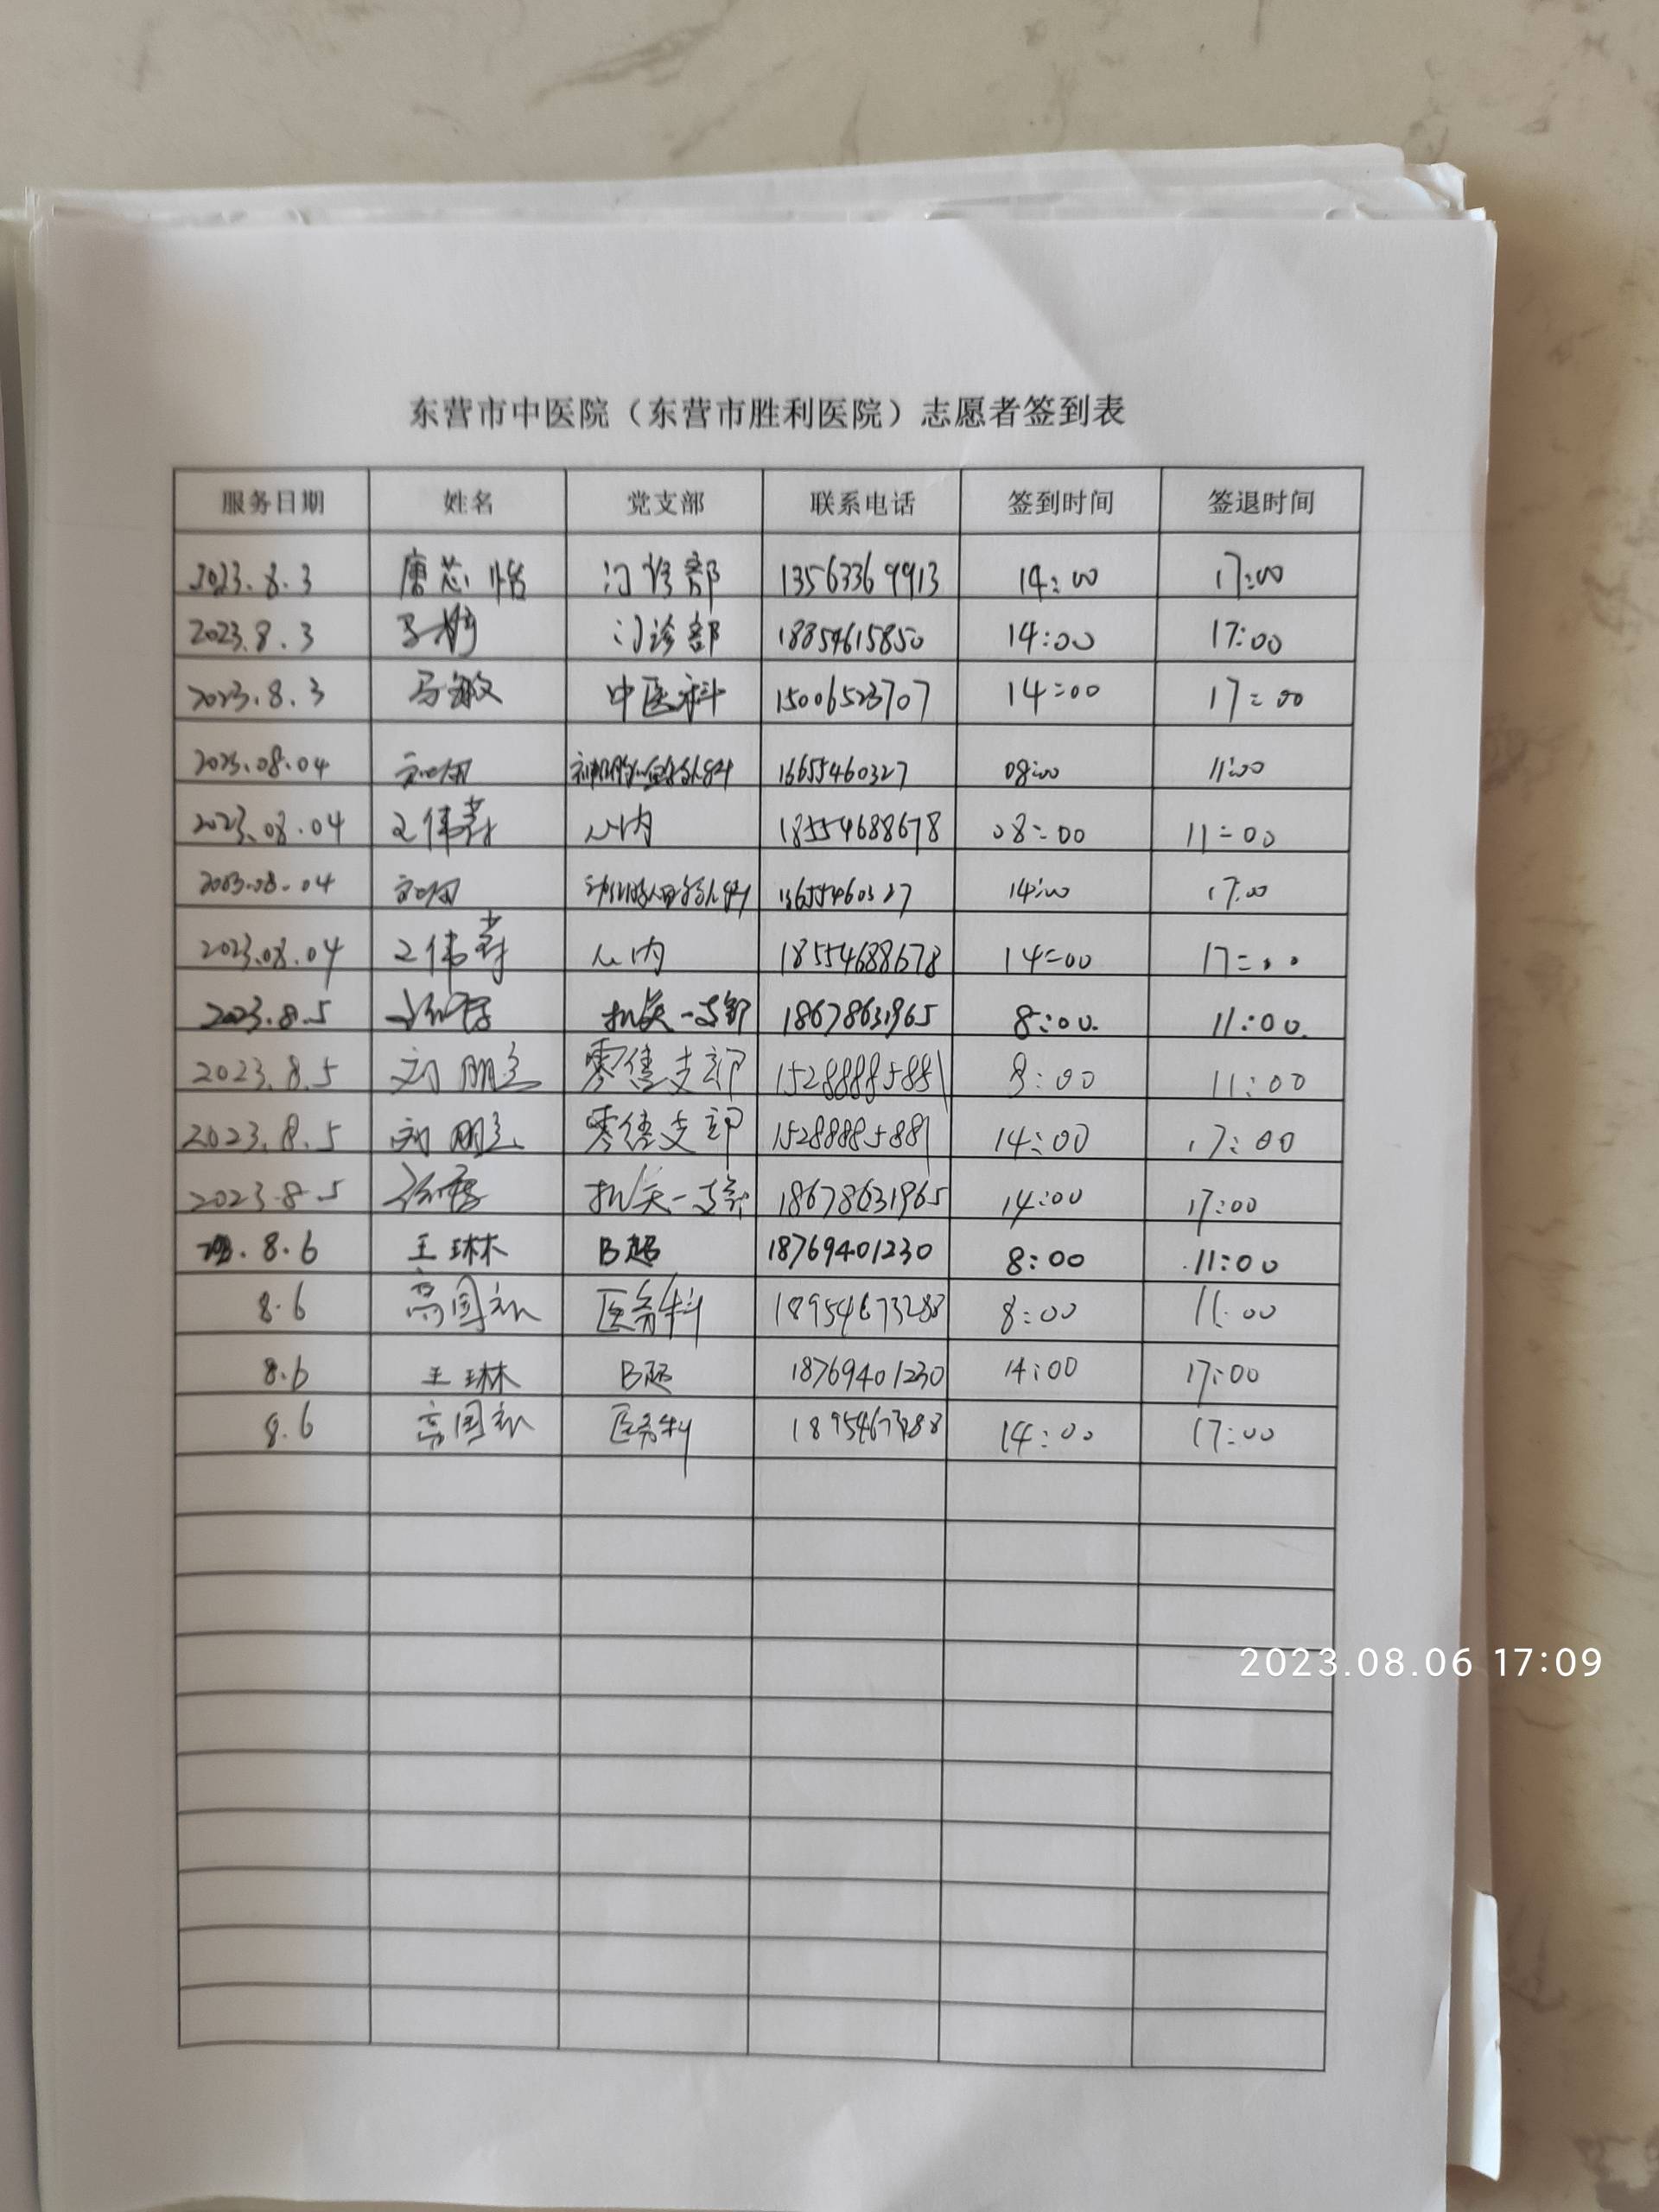 东营市中医院（东营市胜利医院）志愿者签到表
服务日期 姓名 党支部 联系电话 签到时间 签退时间
2023.8.3 唐芯怡 门诊部 13563369913 14:00 17:00
2023.8.3 门诊部 18854615850 14:00 17:00
2023.8.3 马敏 中医科 15006523707 14:00 17:00
2023.08.04 08:00 11:00
2023.08.04 王伟 心内 18554688678 08:00 11:00
2023.08.04 14:00 17:00
2023.08.04 王伟 心内 18554688678 14:00 17:00
2023.8.5 机关一支部 18678631965 8:00. 11:00.
2023.8.5 刘 零售支部 8:00 11:00
2023.8.5 刘 零售支部 15288885881 14:00 17:00
2023.8.5 机关一支部 18678631965 14:00 17:00
8.6 王琳 B超 18769401230 8:00 11:00
8.6 高国 医务科 18954673283 8:00 11:00
8.6 王琳 B超 18769401230 14:00 17:00
8.6 高国 医务科 14:00 17:00
2023.08.06 17:09